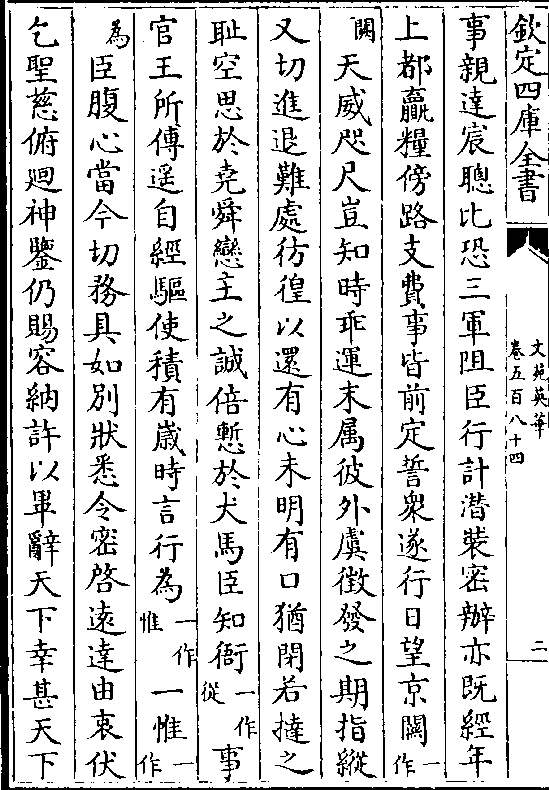 欽定四庫全書
文苑英華
卷五百八十四
二
事親達宸聰比恐三軍阻臣行計潜裝密辦亦既經年
上都贏糧傍路支費事皆前定誓衆遂行日望京闕一作
闕天威咫尺豈知時乖運末属彼外虞徴發之期指縱
又切進退難處彷徨以還有心未明有口猶閉若撻之
耻空思於堯舜戀主之誠倍慙於犬馬臣知衙一作從事
官王所傅遥自經驅使積有嵗時言行為一作惟一惟一作
為臣腹心當今切務具如别狀悉令密啓逺達由衷伏
乞聖慈俯迴神鑒仍賜容納許以畢辭天下幸甚天下